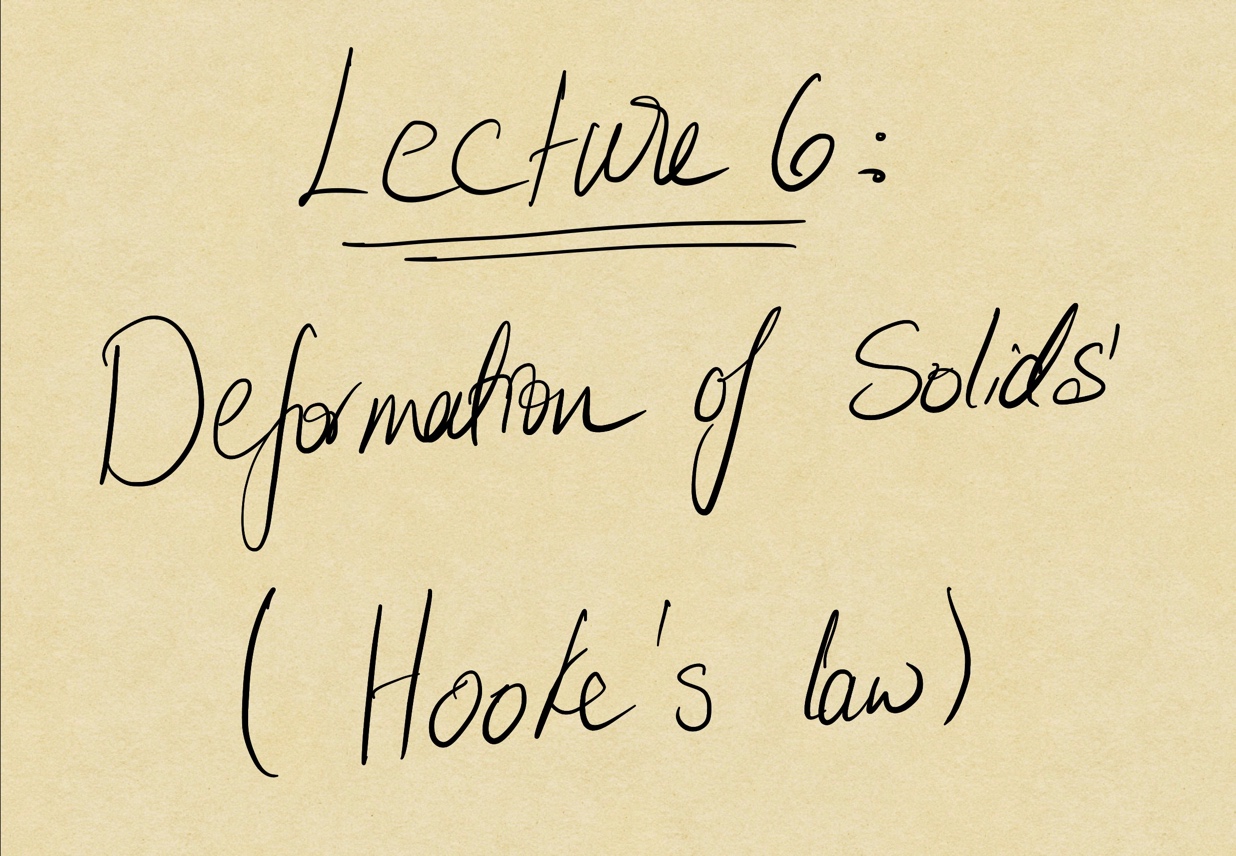 Lecture 6:
Deformation of Solids'
( Hooke's law)